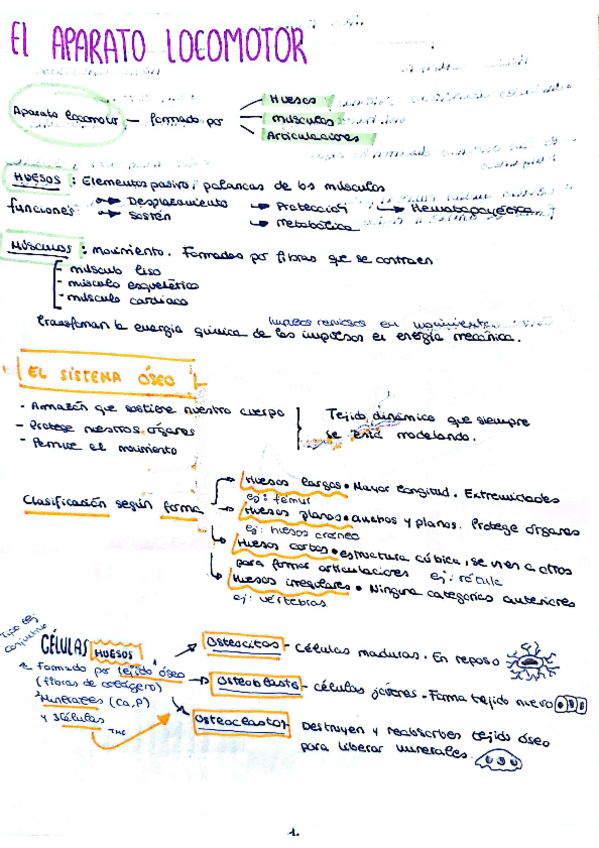 El APARATO LOCOMOTOR
Huesos
Aparato locomotor – formado por
músculos
Articulaciones
HUESOS : Elementos pasivo, palancas de los músculos
funciones: Desplazamiento Protección Hematopoyética
Sostén Metabólica
MÚSCULOS : movimiento. Formados por fibras que se contraen
- músculo liso
- músculo esquelético
- músculo cardíaco
impulsos nerviosos en movimiento
Transforman la energía química de los impulsos en energía mecánica.
EL SISTEMA ÓSEO
- Armazón que sostiene nuestro cuerpo
- Protege nuestros órganos
- Permite el movimiento
Tejido dinámico que siempre
se está modelando.
Clasificación según forma
Huesos largos • Mayor longitud. Extremidades
ej: fémur
Huesos planos • anchos y planos. Protege órganos
ej: huesos cráneo
Huesos cortos • estructura cúbica, se unen a otros
para formar articulaciones ej: rótula
Huesos irregulares • Ninguna categorías anteriores
ej: vértebras
Tipo tej
conjuntivo
CÉLULAS HUESOS
1. Formado por tejido óseo
(fibras de colágeno)
2 Minerales (Ca, P)
y 3 células
Osteocitos – células maduras. En reposo
Osteoblasto – células jóvenes – Forma tejido nuevo
Osteoclastos Destruyen y reabsorben tejido óseo
para liberar minerales.
1.